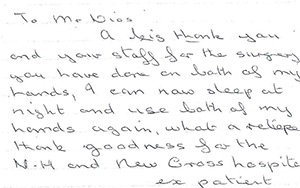 To Mr Dias
A big thank you
and your staff for the surgery
you have done on both of my
hands, I can now sleep at
night and use both of my
hands again, what a
thank goodness for the
N.H and New Cross hospita
ex patient